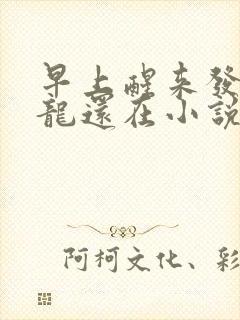 早上醒来發
龍還在小說
阿柯文化、彩